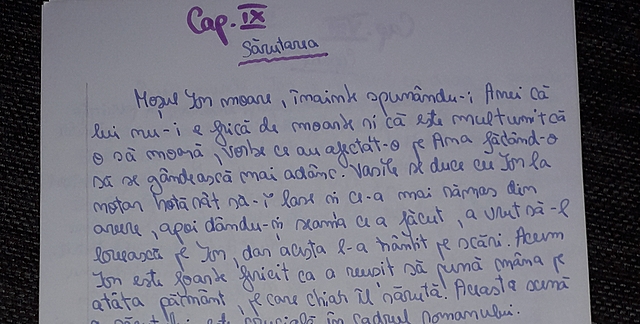 Cap. IX
Sărutarea
Moșul Ion moare, înainte spunându-i Anei că
lui nu-i e frică de moarte și că este mulțumit că
o să moară, vorbe ce au afectat-o pe Ana făcând-o
să se gândească mai adânc. Vasile se duce cu Ion la
notar hotărât să-i lase și ce-a mai rămas din
avere, apoi dându-și seama ce a făcut, a vrut să-l
lovească pe Ion, dar acesta l-a trântit pe scări. Acum
Ion este foarte fericit ca a reușit să pună mâna pe
atâta pământ, pe care chiar îl sărută. Aceasta scenă
a este crucială în cadrul romanului.